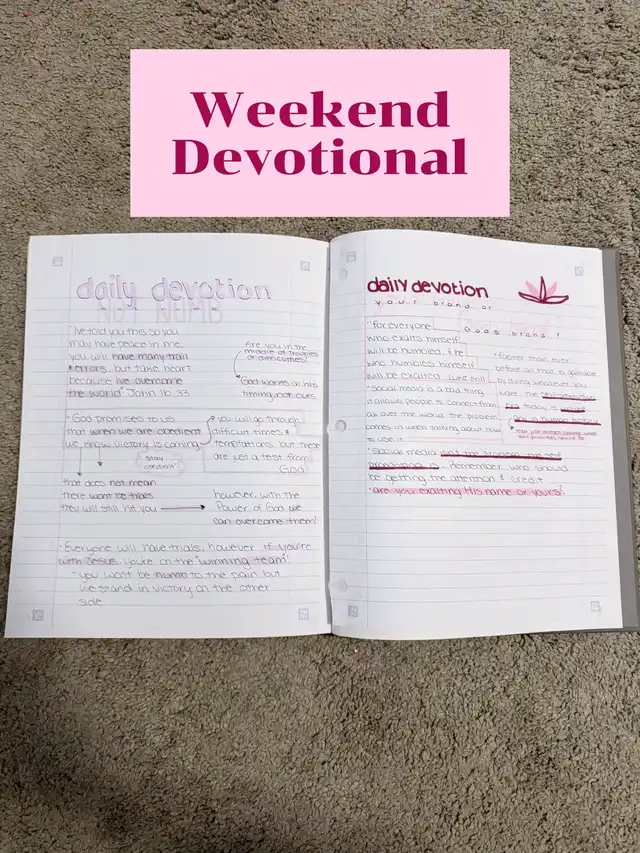 Weekend
Devotional
daily devotion
NOT NUMB
"I've told you this so you
may have peace in me.
you will have many trail
errors. but take heart
because Ive overcome
the world" John 16:33
Are you in the
middle of troubles
or difficulties?
God works on his
timing not ours
God promises to us
that when we are obedient
we know victory is coming
stay
obedient!
you will go through
difficult times &
temptations. but these
are just a test from
God
that does not mean
there wont be trials
they will still hit you
however, with the
Power of God we
can overcome them!
-Everyone will have trials, however if you're
with Jesus, you're on the "winning team"
-you won't be numb to the pain but
we stand in victory on the other
side
daily devotion
your brand or
Gods brand?
"for everyone
who exalts himself
will be humbled, & he
who humbles himself
will be exalted" Luke
"Social media is a bad thing
it allows people to connect from
all over the world. the problem
comes in when talking about how
to use it.
"faster than ever
before all that is gainable
by doing whatever you
want. the
today is
"Social media
Remember who should
be getting the attention & credit
"are you exalting His name or yours?"